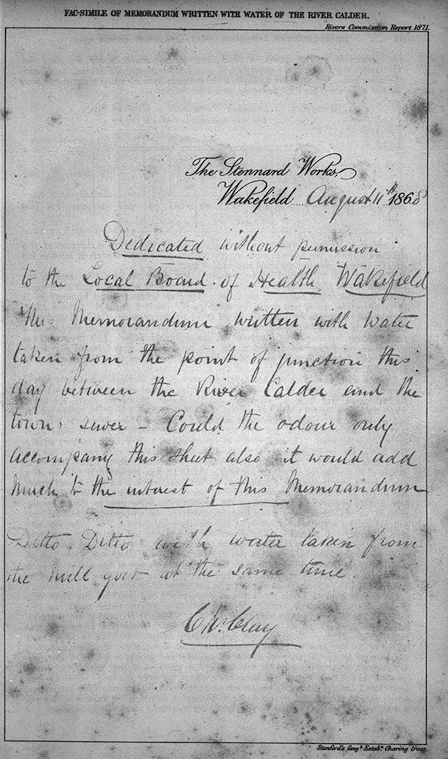 FAC-SIMILE OF MEMORANDUM WRITTEN WITH WATER OF THE RIVER CALDER.
Rivers Commission Report 1871.
The Stennard Works
Wakefield August 11th 1868
Dedicated without permission
to the Local Board of Health Wakefield
This Memorandum written with water
taken from the point of junction this
day between the River Calder and the
towns sewer – Could the odour only
accompany this sheet also it would add
much to the interest of this Memorandum
Ditto Ditto with water taken from
the mill goit at the same time.
Chs. Clay
Stanford's Geogl. Estabt. Charing Cross.